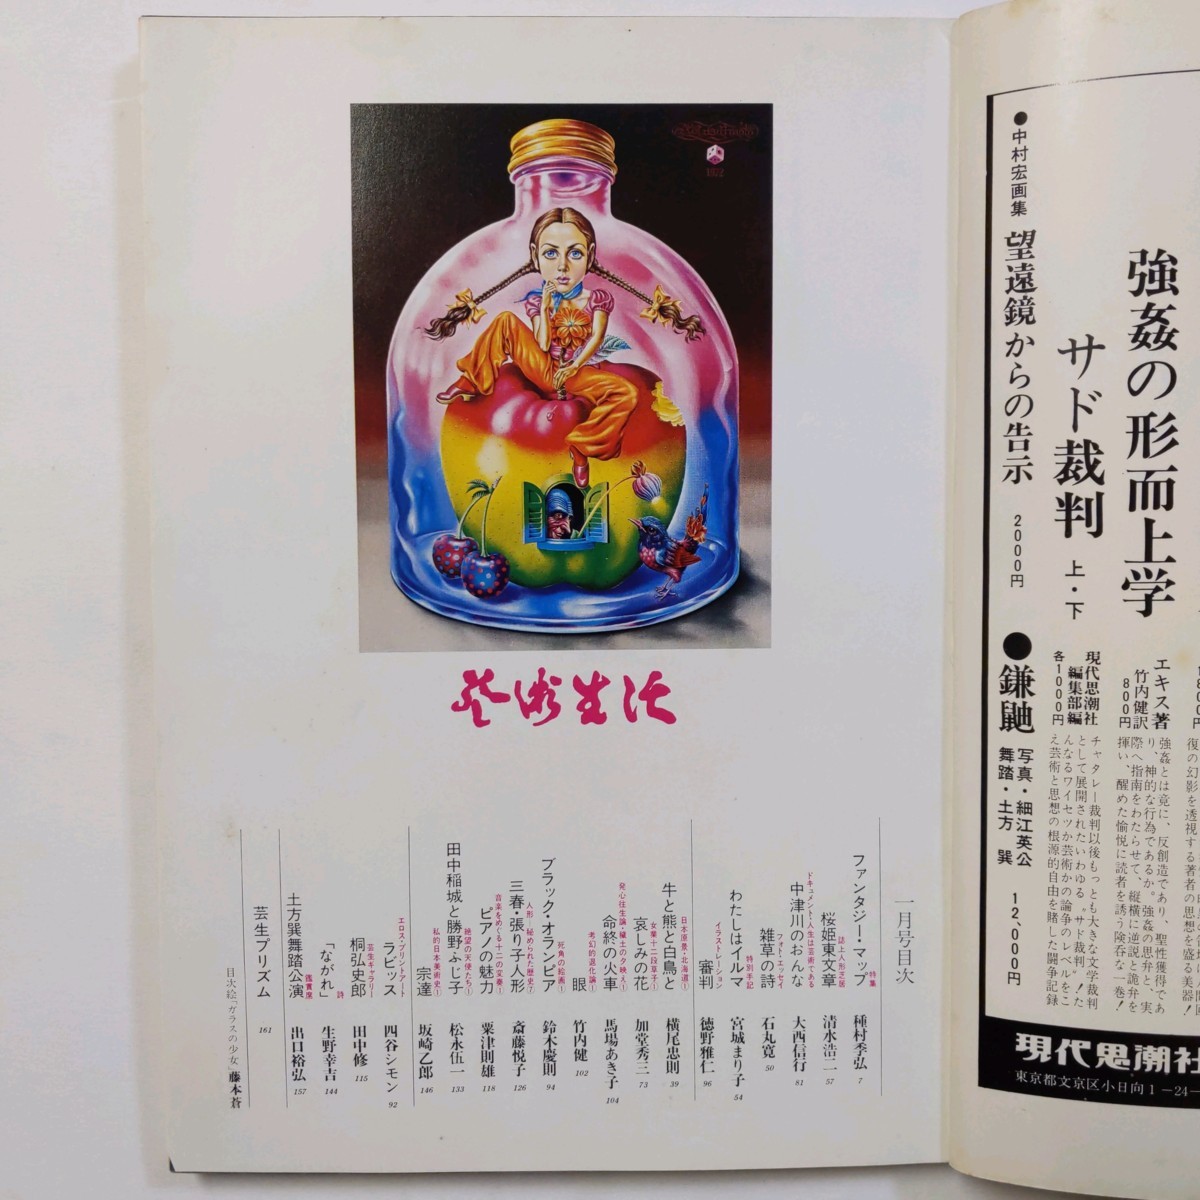 1972
藝術生活
一月号目次
特集
ファンタジー・マップ 種村季弘 7
誌上人形芝居
桜姫東文章 清水浩二 57
ドキュメント・人生は芸術である
中津川のおんな 大西信行 81
フォト・エッセイ
雑草の詩 石丸寛 50
特別手記
わたしはイルマ 宮城まり子 54
イラストレーション
審判 徳野雅仁 96
日本原景・北海道①
牛と熊と白鳥と 横尾忠則 39
女業十二段草子①
哀しみの花 加堂秀三 73
発心往生論・穢土の夕映え①
命終の火車 馬場あき子 104
考幻的退化論①
眼 竹内健 102
死角の絵画①
ブラック・オランピア 鈴木慶則 94
人形—秘められた歴史⑦
三春・張り子人形 斎藤悦子 126
音楽をめぐる十二の変奏①
ピアノの魅力 粟津則雄 118
絶望の天使たち①
田中稲城と勝野ふじ子 松永伍一 133
私的日本美術史①
宗達 坂崎乙郎 146
エロス・プリントアート
ラピッス 四谷シモン 92
芸生ギャラリー
桐弘史郎 田中修 115
詩
「ながれ」 生野幸吉 144
鑑賞席
土方巽舞踏公演 出口裕弘 157
芸生プリズム 161
目次絵「ガラスの少女」藤本蒼
強姦の形而上学
エキス著
竹内健訳
800円
強姦とは竟に、反創造であり、聖性獲得であ
り、神的な行為であるか。強姦の思弁と、実
際へ指南をわたらせて、縦横に逆説と詭弁を
揮い、醒めた愉悦に読者を誘う険呑な一巻!
サド裁判 上・下
現代思潮社
編集部編
各1000円
チャタレー裁判以後もっとも大きな文学裁判
として展開されたいわゆる〝サド裁判〟!た
んなるワイセツか芸術かの論争のレベルをこ
え芸術と思想の根源的自由を賭した闘争記録
●中村宏画集 望遠鏡からの告示 2000円
●鎌鼬 写真・細江英公
舞踏・土方 巽 12,000円
復の幻影を透視する著者の思想を盛る美器!
現代思潮社
東京都文京区小日向1－24－